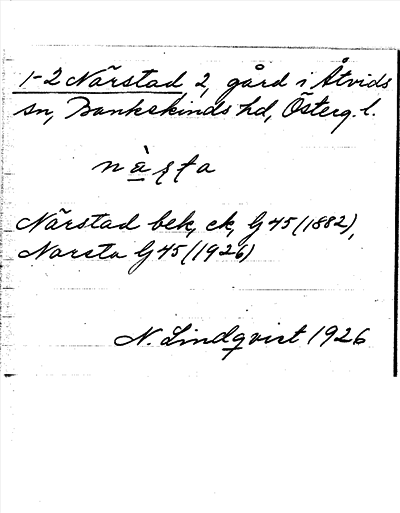 1-2 Närstad, 2, gård i Åtvids
sn, Bankekinds hd, Österg. l.
nà̱ṣṭa
Närstad bek, ck, G45 (1882),
Narsta G45 (1926)
N. Lindqvist 1926